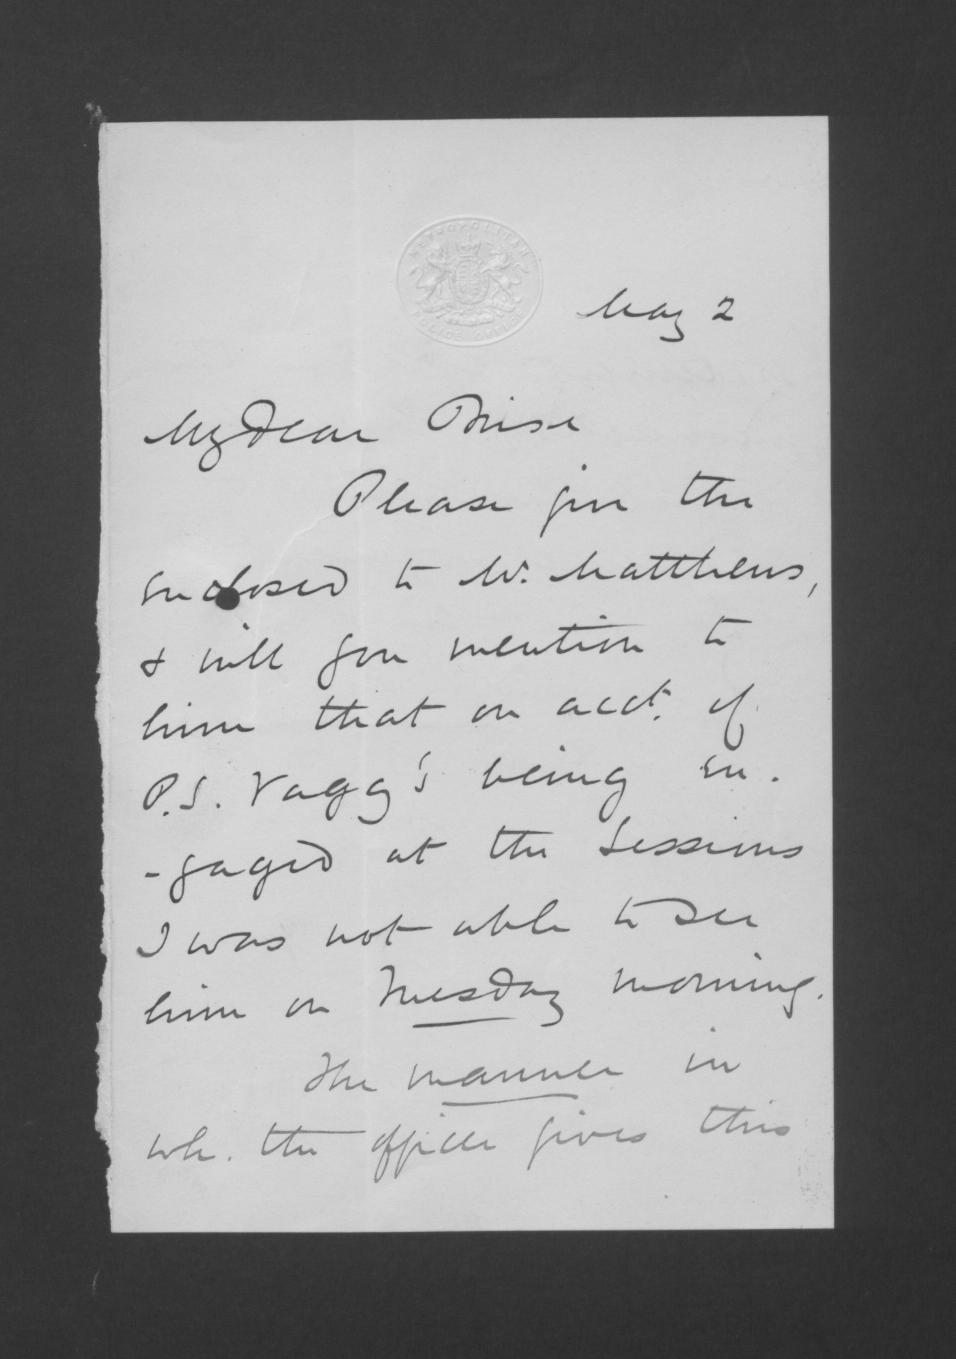 METROPOLITAN
POLICE OFFICE
May 2
My dear Brise
Please give the
enclosed to Mr. Matthews,
& will you mention to
him that on acct. of
P.S. Vagg's being en-
-gaged at the Sessions
I was not able to see
him on Tuesday morning.
The manner in
wh. the officer gives this